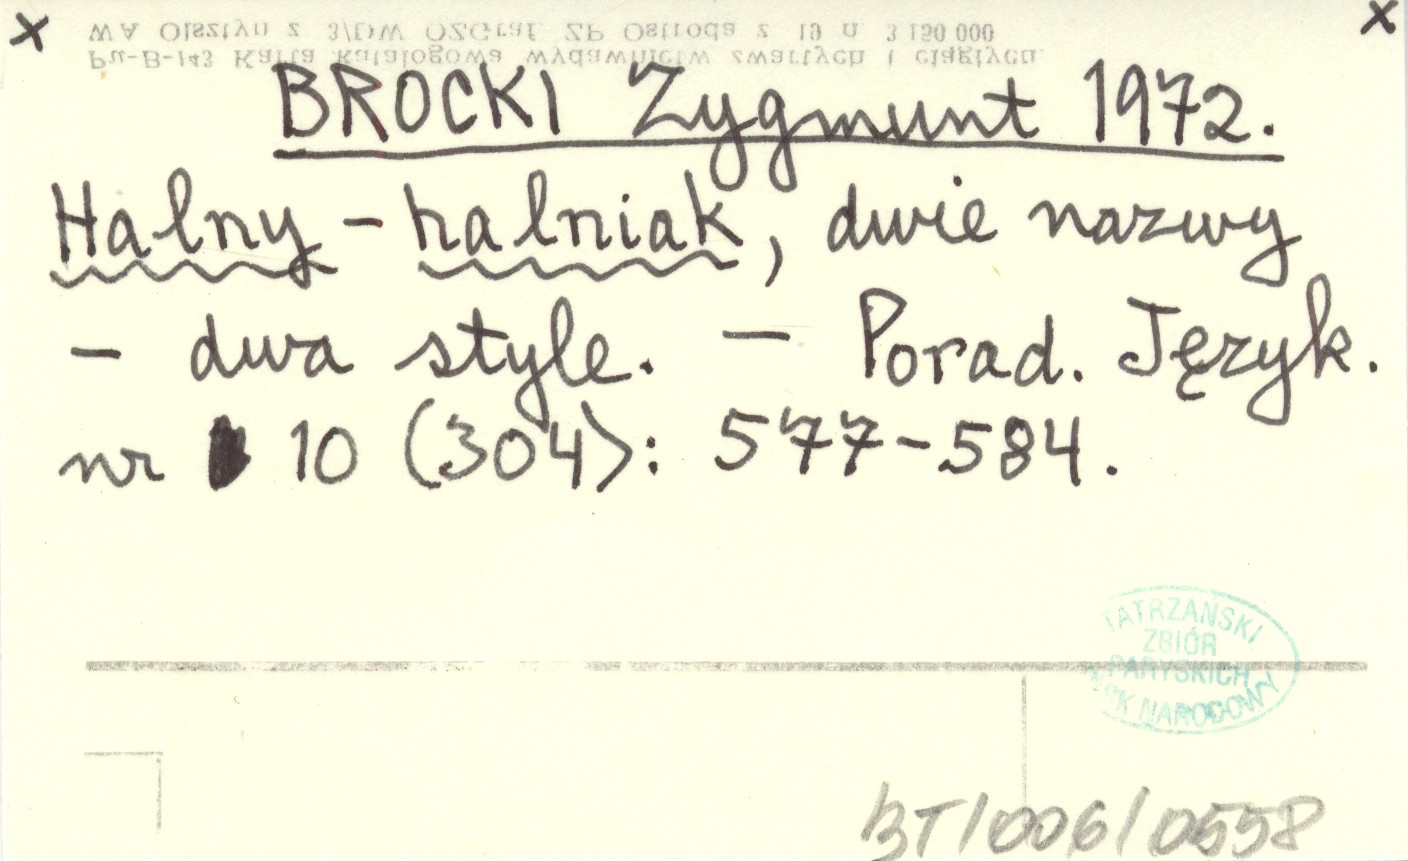 x x
WA Olsztyn z 3/DW OZGraf. ZP Ostróda z 19 n 3 150 000
Pu-B-143 Karta katalogowa wydawnictw zwartych i ciągłych
BROCKI Zygmunt 1972.
Halny - halniak, dwie nazwy
- dwa style. - Porad. Język.
nr 10 (304): 577-584.
TATRZAŃSKI
ZBIÓR
PARYSKICH
PARK NARODOWY
BT/006/0558